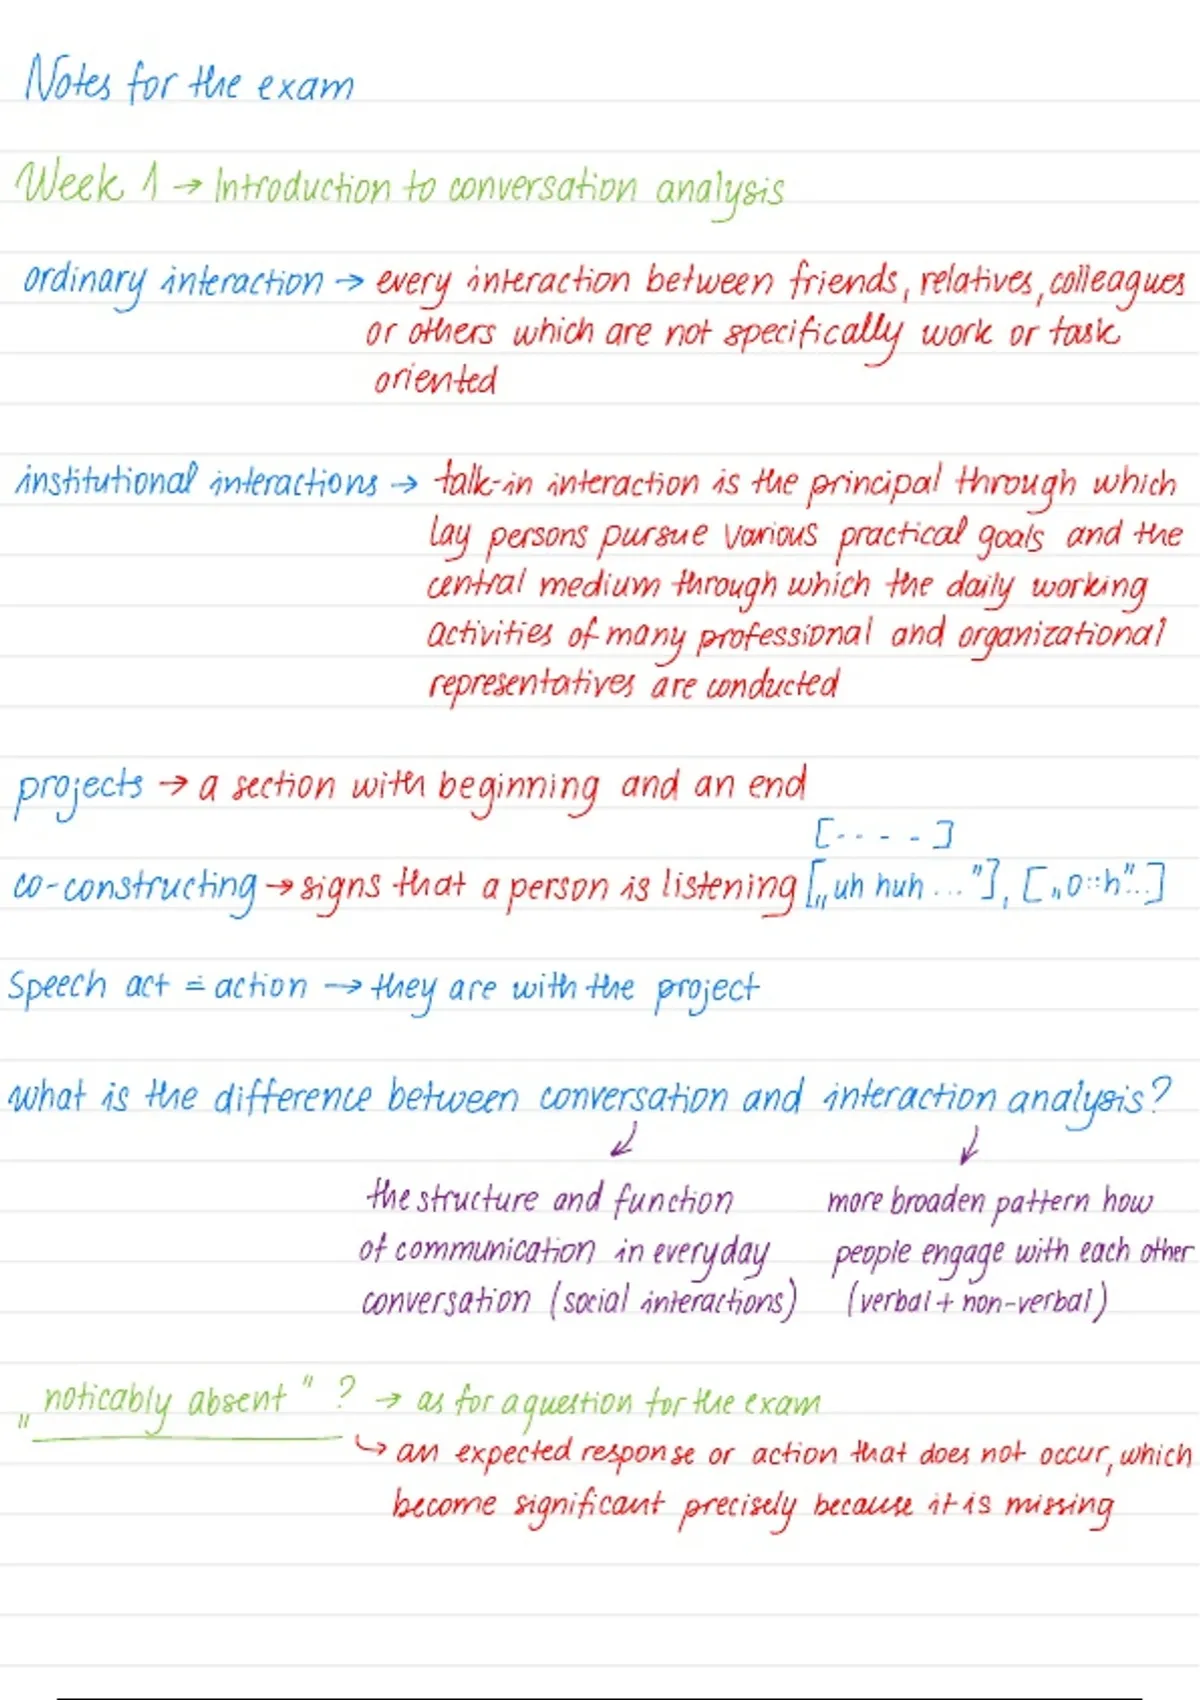 Notes for the exam
Week 1 → Introduction to conversation analysis
ordinary interaction → every interaction between friends, relatives, colleagues
or others which are not specifically work or task
oriented
institutional interactions → talk-in interaction is the principal through which
lay persons pursue various practical goals and the
central medium through which the daily working
activities of many professional and organizational
representatives are conducted
projects → a section with beginning and an end
[· · - -]
co-constructing → signs that a person is listening [„uh huh ..."], [„o::h"..]
Speech act = action → they are with the project
what is the difference between conversation and interaction analysis?
the structure and function
of communication in everyday
conversation (social interactions)
more broaden pattern how
people engage with each other
(verbal + non-verbal)
„noticably absent" ? → as for a question for the exam
↳ an expected response or action that does not occur, which
become significant precisely because it is missing